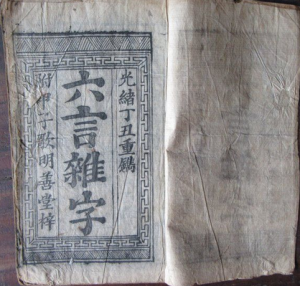 光緒丁丑重鐫
六言雜字
附甲子歌明善堂梓